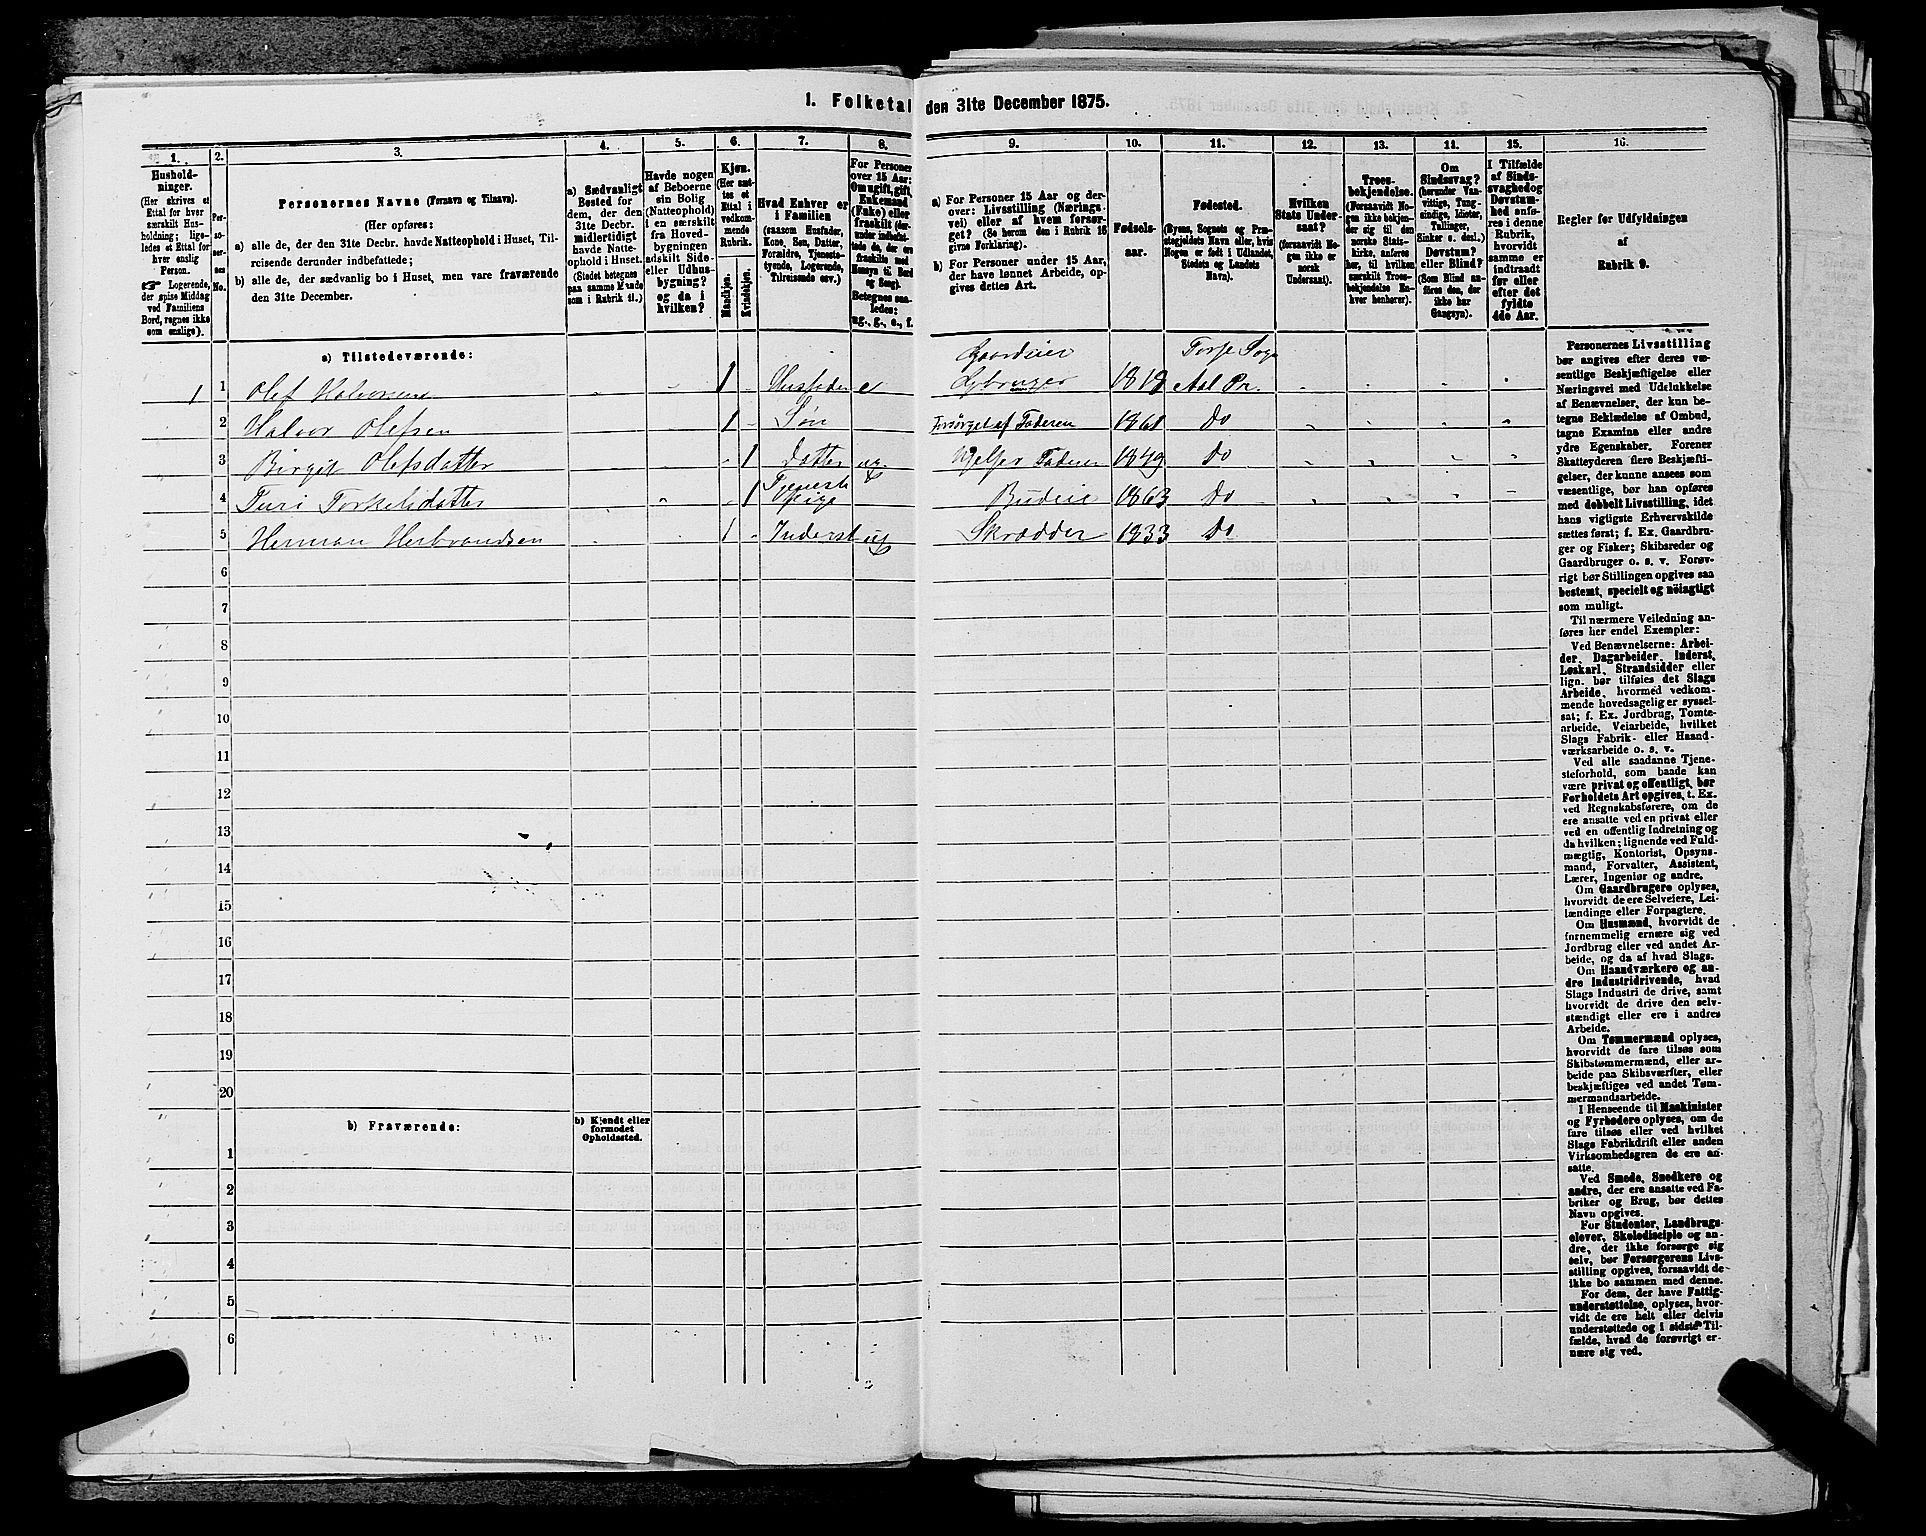 1. Folketal den 31te December 1875.
1.
Hushold-
ninger.
(Her skrives et
Ettal for hver
særskilt Hus-
holdning; lige-
ledes et Ettal for
hver enslig
Person.
☞ Logerende,
der spise Middag
ved Familiens
Bord, regnes ikke
som enslige).
2.
Per-
so-
ner-
nes
No.
3.
Personernes Navne (Fornavn og Tilnavn).
(Her opføres:
a) alle de, der den 31te Decbr. havde Natteophold i Huset, Til-
reisende derunder indbefattede;
b) alle de, der sædvanlig bo i Huset, men vare fraværende
den 31te December.
4.
a) Sædvanligt
Bosted for
dem, der den
31te Decbr.
midlertidigt
havde Natte-
ophold i Huset.
(Stedet betegnes
paa samme Maade
som i Rubrik 11.)
5.
Havde nogen
af Beboerne
sin Bolig
(Natteophold)
i en særskilt
fra Hoved-
bygningen
adskilt Side-
eller Udhus-
bygning?
og da i
hvilken?
6.
Kjøn.
(Her sæt-
tes et
Ettal i
vedkom-
mende
Rubrik.
Mandkjøn.
Kvindekjøn.
7.
Hvad Enhver er
i Familien
(saasom Husfader,
Kone, Søn, Datter,
Forældre, Tjeneste-
tyende, Logerende,
Tilreisende osv.)
8.
For Personer
over 15 Aar:
Om ugift, gift,
Enkemand
(Enke) eller
fraskilt (der-
under indbefat-
tede de, der ere
fraskilte med
Hensyn til Bord
og Seng).
Betegnes saa-
ledes:
ug., g., e., f.
9.
a) For Personer 15 Aar og der-
over: Livsstilling (Nærings-
vei) eller af hvem forsør-
get? (Se herom den i Rubrik 16
givne Forklaring).
b) For Personer under 15 Aar,
der have lønnet Arbeide, op-
gives dettes Art.
10.
Fødsels-
aar.
11.
Fødested.
(Byens, Sognets og Præ-
stegjeldets Navn eller, hvis
Nogen er født i Udlandet,
Stedets og Landets
Navn).
12.
Hvilken
Stats Under-
saat?
(forsaavidt No-
gen ikke er
norsk
Undersaat).
13.
Troes-
bekjendelse.
(Forsaavidt No-
gen ikke bekjen-
der sig til den
norske Stats-
kirke, anføres
her, til hvilken
særskilt Troes-
bekjendelse En-
hver henhører).
Om
Sindssvag?
(herunder Van-
vittige, Tung-
sindige, Idioter,
Tullinger,
Sinker o. desl.)
Døvstum?
eller Blind?
(Som Blind an-
føres den, der
ikke har
Gangsyn).
15.
I Tilfælde
af Sinds-
svaghed og
Døvstum-
hed anfø-
res i denne
Rubrik,
hvorvidt
samme er
indtraadt
før eller
efter det
fyldte
4de Aar.
16.
Regler for Udfyldningen
af
Rubrik 9.
a) Tilstedeværende:
Gaardeier Torpe Sogn
1 1 Olef Halvorsen 1 Husfader e Gybruger 1818 Aal Pr.
2 Halvor Olefsen 1 Søn Forsørget af Faderen 1861 Do
3 Birgit Olefsdatter 1 Datter ug. Hjelper Faderen 1849 Do
4 Turi Torkelsdatter 1 Tjeneste Pige Budeie 1863 Do
5 Herman Herbrandsen 1 Inderst ug Skrædder 1833 Do
6
7
8
9
10
11
12
13
14
15
16
17
18
19
20
b) Fraværende:
b) Kjendt eller
formodet
Opholdssted.
1
2
3
4
5
6
Personernes Livsstilling
bør angives efter deres væ-
sentlige Beskjæftigelse eller
Næringsvei med Udelukkelse
af Benævnelser, der kun be-
tegne Beklædelse af Ombud,
tagne Examina eller andre
ydre Egenskaber. Forener
Skatteyderen flere Beskjæfti-
gelser, der kunne ansees som
væsentlige, bør han opføres
med dobbelt Livsstilling, idet
hans vigtigste Erhvervskilde
sættes først; f. Ex. Gaardbru-
ger og Fisker; Skibsreder og
Gaardbruger o. s. v. Forøv-
rigt bør Stillingen opgives saa
bestemt, specielt og nöiagtigt
som muligt.
Til nærmere Veiledning an-
føres her endel Exempler:
Ved Benævnelserne: Arbei-
der, Dagarbeider, Inderst,
Løskarl, Strandsidder eller
lign. bør tilføies det Slags
Arbeide, hvormed vedkom-
mende hovedsagelig er syssel-
sat; f. Ex. Jordbrug, Tomte-
arbeide, Veiarbeide, hvilket
Slags Fabrik- eller Haand-
værksarbeide o. s. v.
Ved alle saadanne Tjene-
steforhold, som baade kan
være privat og offentligt, bør
Forholdets Art opgives, t. Ex.
ved Regnskabsførere, om de
ere ansatte ved en privat eller
ved en offentlig Indretning og
da hvilken; lignende ved Fuld-
mægtig, Kontorist, Opsyns-
mand, Forvalter, Assistent,
Lærer, Ingeniør og andre.
Om Gaardbrugere oplyses,
hvorvidt de ere Selveiere, Lei-
lændinge eller Forpagtere.
Om Husmænd, hvorvidt de
fornemmelig ernære sig ved
Jordbrug eller ved andet Ar-
beide, og da af hvad Slags.
Om Haandværkere og an-
dre Industridrivende, hvad
Slags Industri de drive, samt
hvorvidt de drive den selv-
stændigt eller ere i andres
Arbeide.
Om Tømmermænd oplyses,
hvorvidt de fare tilsøs som
Skibstømmermænd, eller ar-
beide paa Skibsværfter, eller
beskjæftiges ved andet Tøm-
mermandsarbeide.
I Henseende til Maskinister
og Fyrbødere oplyses, om de
fare tilsøs eller ved hvilket
Slags Fabrikdrift eller anden
Virksomhedsgren de ere an-
satte.
Ved Smede, Snedkere og
andre, der ere ansatte ved Fa-
briker og Brug, bør dettes
Navn opgives.
For Studenter, Landbrugs-
elever, Skoledisciple og an-
dre, der ikke forsørge sig
selv, bør Forsørgerens Livs-
stilling opgives, forsaavidt de
ikke bo sammen med denne.
For dem, der have Fattig-
understøttelse, oplyses, hvor-
vidt de ere helt eller delvis
understøttede og i sidste Til-
fælde, hvad de forøvrigt er-
nære sig ved.